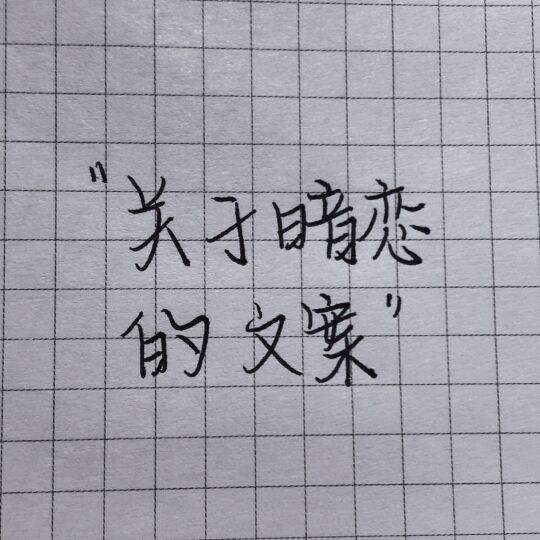 "关于暗恋
的文案"